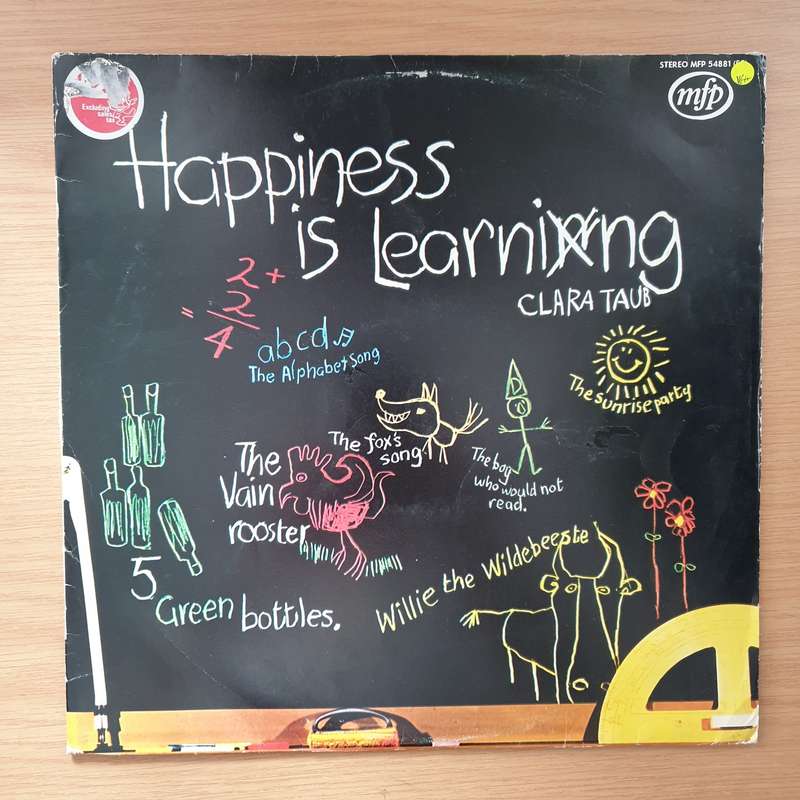 STEREO MFP 54881
mfp
Excluding
sales
tax
Happiness
is Learning
CLARA TAUB
2 +
2
= 4
abcd
The Alphabet Song
The Sunrise party
The fox's
song
The boy
who would not
read.
The
Vain
rooster
Willie the Wildebeeste
5
Green bottles.